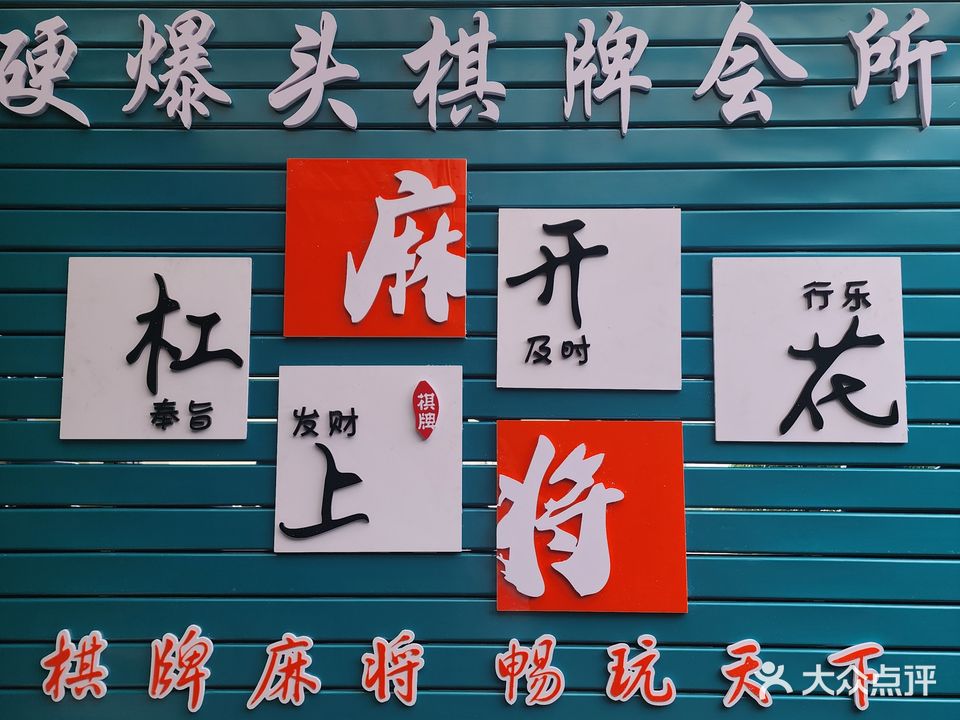 硬爆头棋牌会所
麻
将
杠
奉旨
发财
上
棋牌
开
及时
行乐
花
棋牌麻将 畅玩天下
大众点评